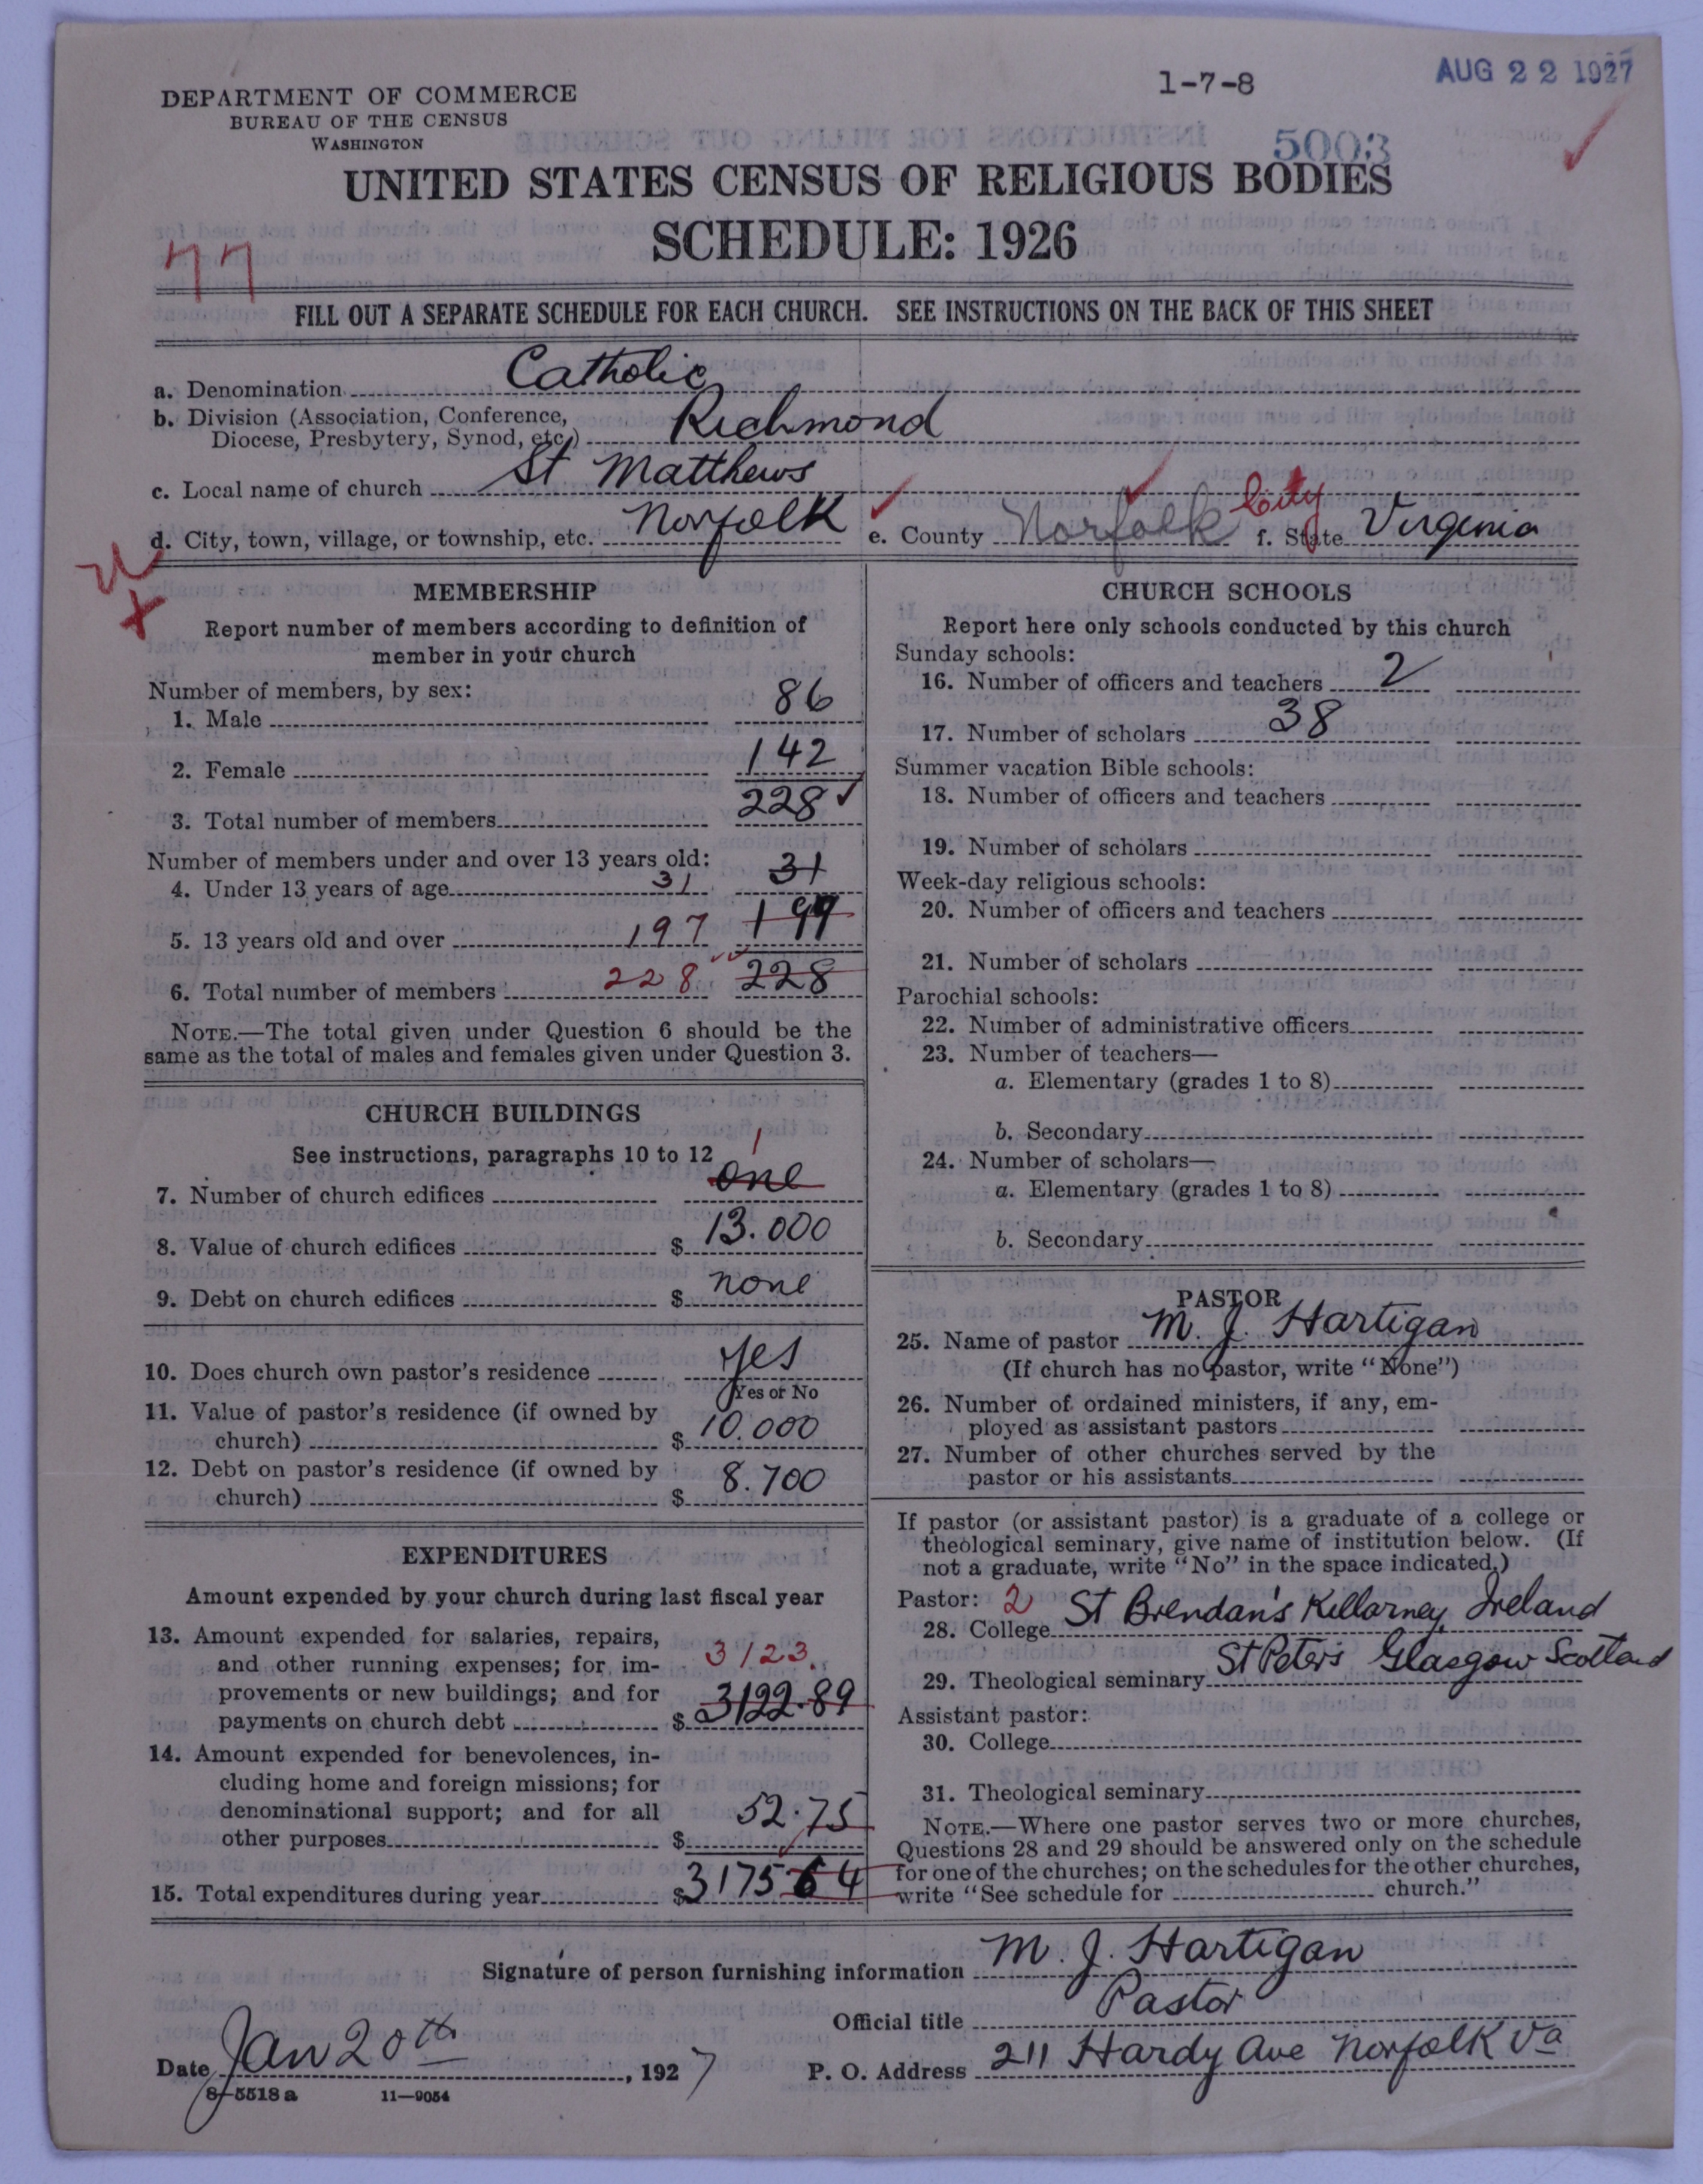 1-7-8
AUG 22 1927
DEPARTMENT OF COMMERCE
BUREAU OF THE CENSUS
WASHINGTON
5003
UNITED STATES CENSUS OF RELIGIOUS BODIES
SCHEDULE: 1926
77
FILL OUT A SEPARATE SCHEDULE FOR EACH CHURCH. SEE INSTRUCTIONS ON THE BACK OF THIS SHEET
a. Denomination Catholic
b. Division (Association, Conference,
Diocese, Presbytery, Synod, etc.) Richmond
c. Local name of church St Matthews
d. City, town, village, or township, etc. Norfolk e. County Norfolk City f. State Virginia
MEMBERSHIP
Report number of members according to definition of
member in your church
Number of members, by sex:
1. Male 86
2. Female 142
3. Total number of members 228
Number of members under and over 13 years old:
4. Under 13 years of age 31 31
5. 13 years old and over 197 199
6. Total number of members 228 228
NOTE.—The total given under Question 6 should be the
same as the total of males and females given under Question 3.
CHURCH BUILDINGS
See instructions, paragraphs 10 to 12
7. Number of church edifices one 1
8. Value of church edifices $ 13.000
9. Debt on church edifices $ none
10. Does church own pastor's residence Yes
Yes or No
11. Value of pastor's residence (if owned by
church) $ 10.000
12. Debt on pastor's residence (if owned by
church) $ 8.700
EXPENDITURES
Amount expended by your church during last fiscal year
13. Amount expended for salaries, repairs,
and other running expenses; for im-
provements or new buildings; and for
payments on church debt $ 3122.89 3123.
14. Amount expended for benevolences, in-
cluding home and foreign missions; for
denominational support; and for all
other purposes $ 52.75
15. Total expenditures during year $ 3175 64
CHURCH SCHOOLS
Report here only schools conducted by this church
Sunday schools:
16. Number of officers and teachers 2
17. Number of scholars 38
Summer vacation Bible schools:
18. Number of officers and teachers
19. Number of scholars
Week-day religious schools:
20. Number of officers and teachers
21. Number of scholars
Parochial schools:
22. Number of administrative officers
23. Number of teachers—
a. Elementary (grades 1 to 8)
b. Secondary
24. Number of scholars—
a. Elementary (grades 1 to 8)
b. Secondary
PASTOR
25. Name of pastor M. J. Hartigan
(If church has no pastor, write "None")
26. Number of ordained ministers, if any, em-
ployed as assistant pastors
27. Number of other churches served by the
pastor or his assistants
If pastor (or assistant pastor) is a graduate of a college or
theological seminary, give name of institution below. (If
not a graduate, write "No" in the space indicated.)
Pastor: 2
28. College St Brendan's Killarney, Ireland
29. Theological seminary St Peter's Glasgow Scotland
Assistant pastor:
30. College
31. Theological seminary
NOTE.—Where one pastor serves two or more churches,
Questions 28 and 29 should be answered only on the schedule
for one of the churches; on the schedules for the other churches,
write "See schedule for church."
Signature of person furnishing information M. J. Hartigan
Official title Pastor
Date Jan 20th, 1927 P. O. Address 211 Hardy Ave Norfolk Va
8-5518 a 11-9054